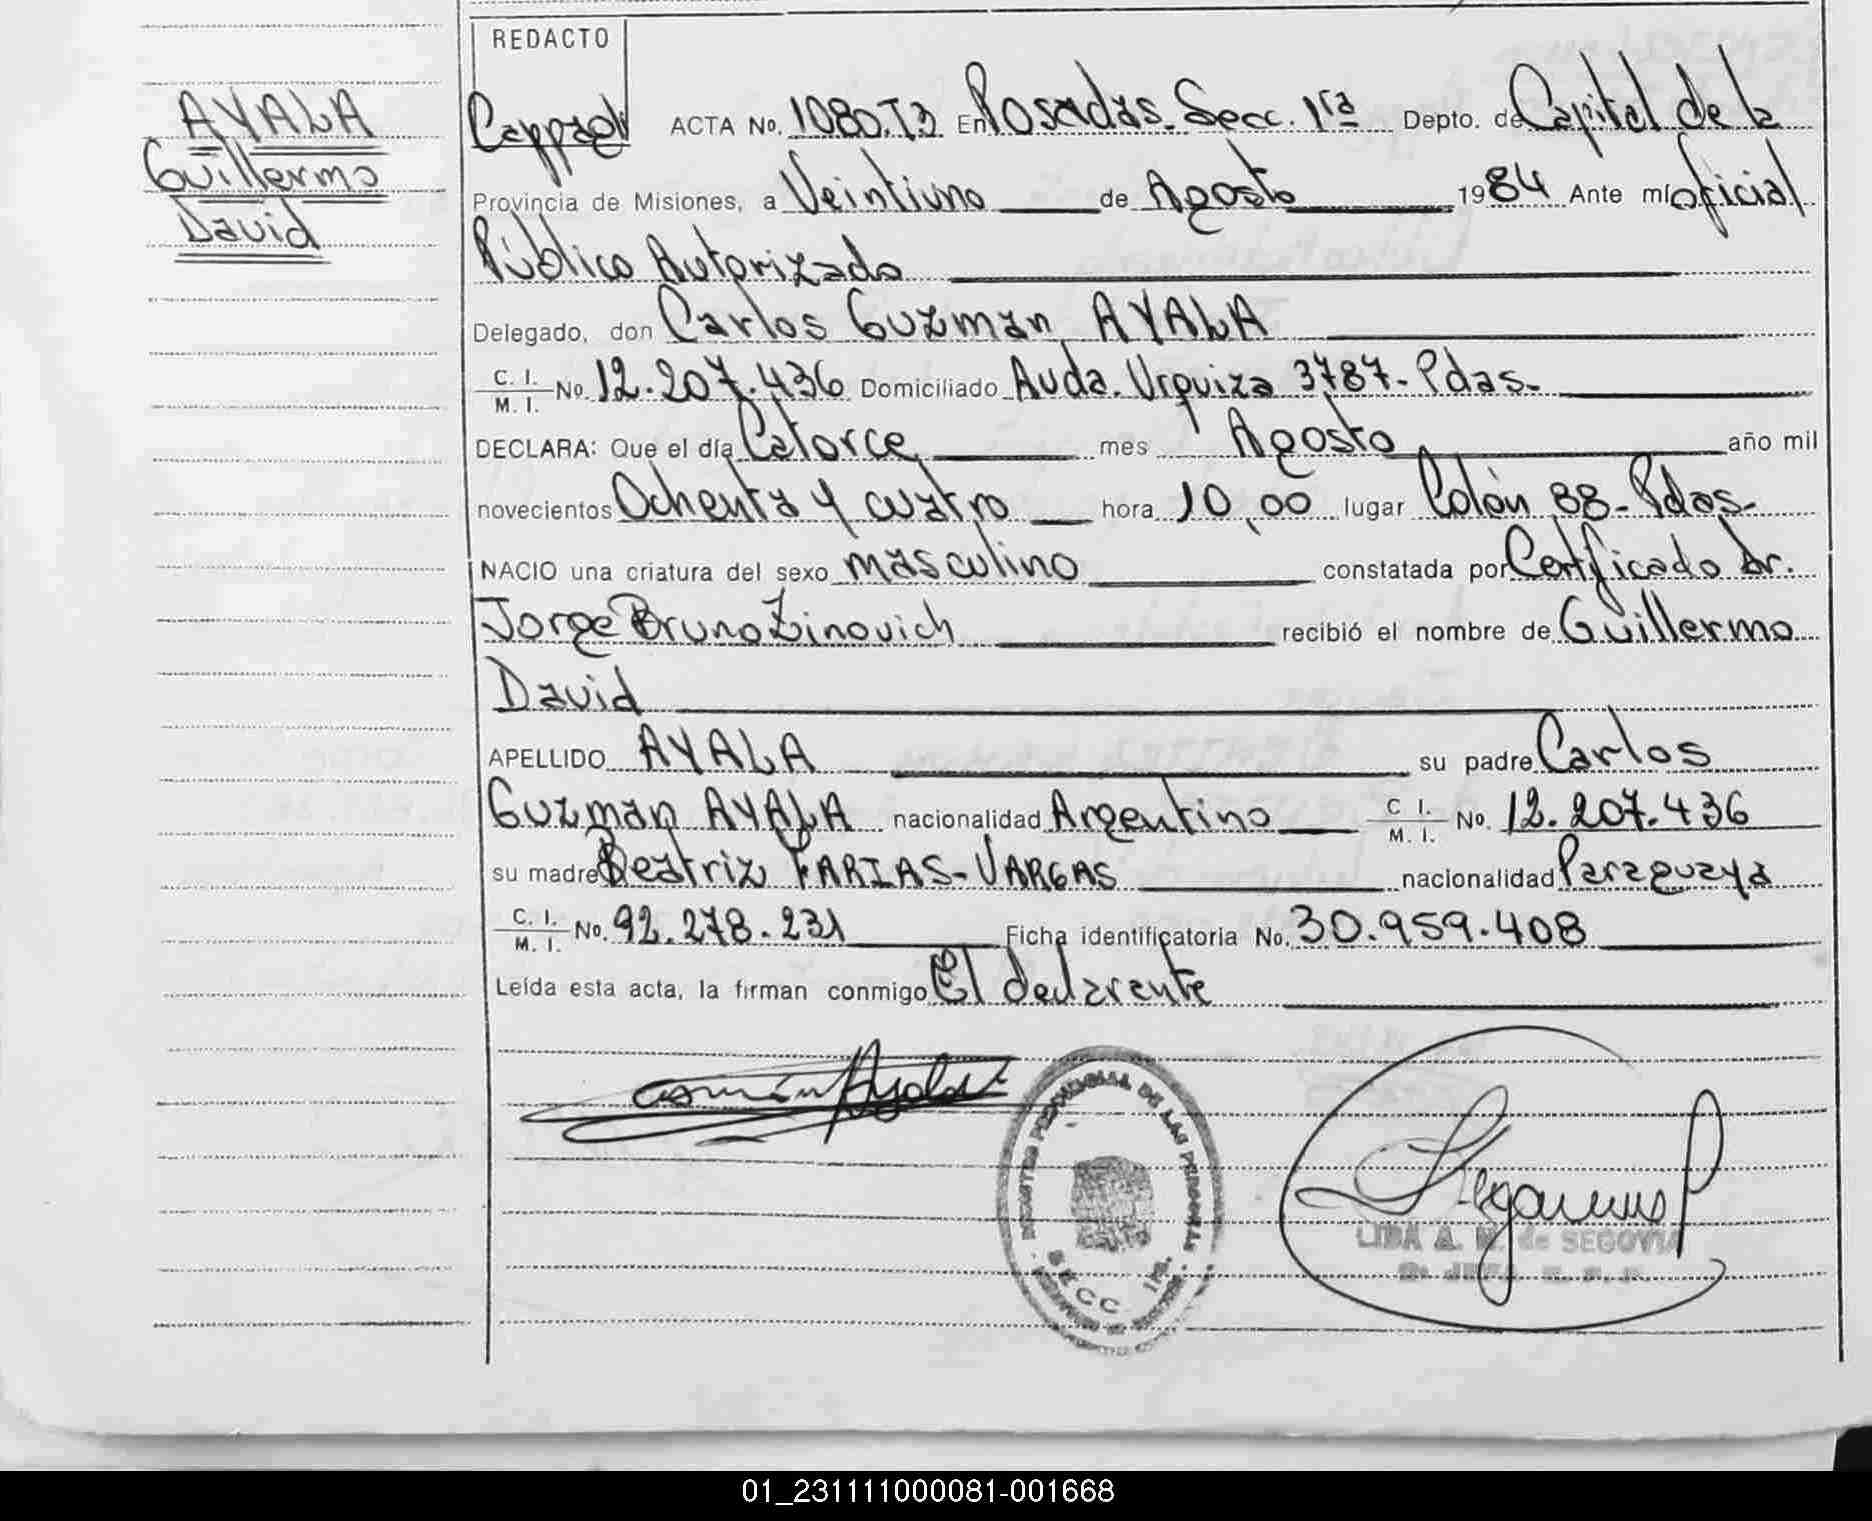 REDACTO
AYALA
Guillermo
David
ACTA No. 1080.T3 En Posadas. Secc. 1ra Depto. de Capital de la
Provincia de Misiones, a Veintiuno de Agosto 1984 Ante mí oficial
Público Autorizado
Delegado, don Carlos Guzman AYALA
C. I. M. I. No. 12.207.436 Domiciliado Avda. Urquiza 3787- Pdas-
DECLARA: Que el día Catorce mes Agosto año mil
novecientos Ochenta y cuatro hora 10,00 lugar Colón 88- Pdas-
NACIO una criatura del sexo masculino constatada por Certificado Dr.
Jorge Bruno Zinovich recibió el nombre de Guillermo
David
APELLIDO AYALA su padre Carlos
Guzman AYALA nacionalidad Argentino C I. M. I. No. 12.207.436
su madre Beatriz FARIAS-VARGAS nacionalidad Paraguaya
C. I. M. I. No. 92.278.231 Ficha identificatoria No. 30.959.408
Leída esta acta, la firman conmigo El declarante
Ayala
REGISTRO PROVINCIAL DE LAS PERSONAS
SECC 1ra.
A. M. de SEGOVIA
01_231111000081-001668